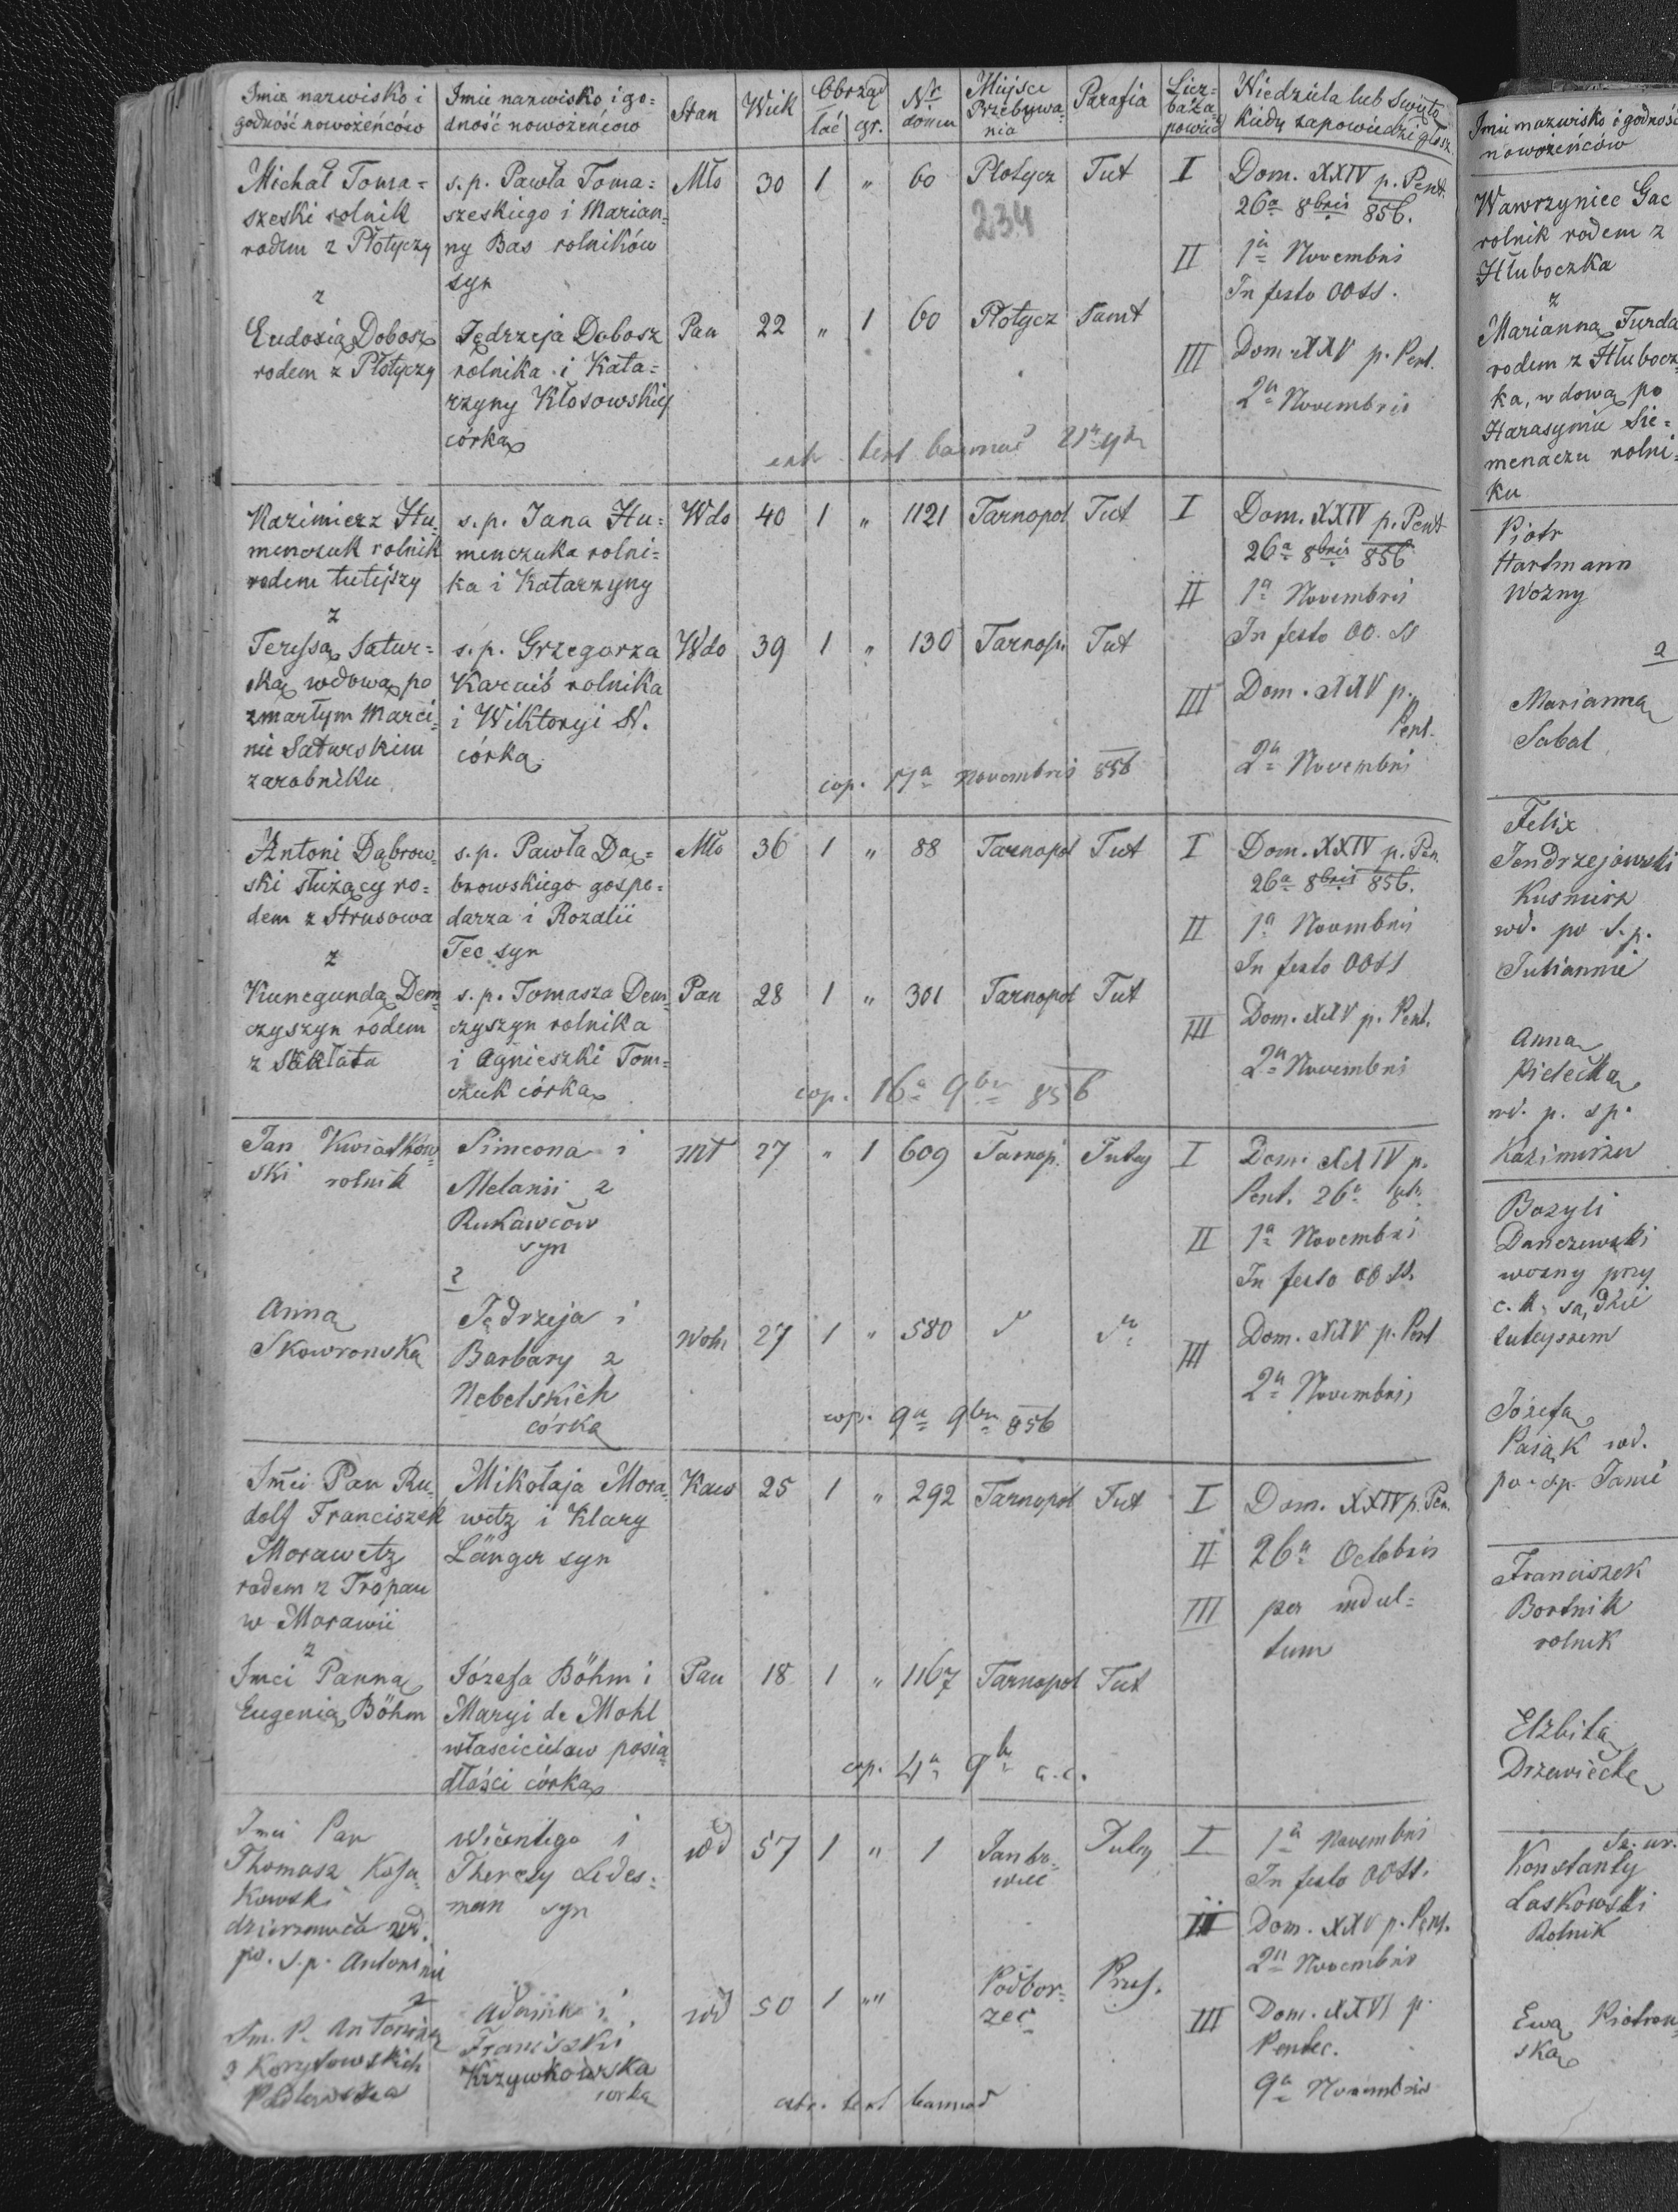 Imie nazwisko i
godność nowożeńców
Imie nazwisko i go=
dność nowożeńców
Stan
Wiek
Obrząd
łać gr.
Nr
domu
Miejsce
Przebywa=
nia
Parafia
Licz=
ba za=
powied
Niedziela lub Święto
kiedy zapowiedzi głosz.
Michał Toma=
szeski rolnik
rodem z Płotyczy
z
Eudoxią Dobosz
rodem z Płotyczy
s.p. Pawła Toma=
szeskiego i Marian=
ny Bas rolników
syn
Jędrzeja Dobosz
rolnika i Kata=
rzyny Kłosowskiej
córką
Mło 30 1 " 60 Płotycz Tut
234
Pan 22 " 1 60 Płotycz Tamt
I Dom. XXIV p. Pent.
26a 8bris 856.
II 1a Novembris
In festo OOSS.
III Dom. XXV p. Pent.
2a Novembris
Kazimierz Hu=
menczuk rolnik
rodem tutejszy
z
Teressą Satur=
ską wdową po
zmarłym Marci=
nie Saturskim
zarobniku
s.p. Jana Hu=
menczuka rolni=
ka i Katarzyny
s.p. Grzegorza
rolnika
i Wiktoryi N.
córką
Wdo 40 1 " 1121 Tarnopol Tut
Wdo 39 1 " 130 Tarnop. Tut
cop. Novembris 856
I Dom. XXIV p. Pent
26a 8bris 856
II 1a Novembris
In festo OO. SS
III Dom. XXV p.
Pent.
2a Novembris
Antoni Dąbrow=
ski służący ro=
dem z Strusowa
z
Kunegundą Dem=
czyszyn rodem
z Skałata
s.p. Pawła Dą=
browskiego gospo=
darza i Rozalii
Tec syn
s.p. Tomasza Dem=
czyszyn rolnika
i Agnieszki Tom=
czuk córką
Mło 36 1 " 88 Tarnopol Tut
Pan 28 1 " 301 Tarnopol Tut
cop. 16a 9bris 856
I Dom. XXIV p. Pen.
26a 8bris 856.
II 1a Novembris
In festo OOSS
III Dom. XXV p. Pent.
2a Novembris
Jan Kwiatkow=
ski rolnik
Simeona i
Melanii z
Rukawców
syn
z
Anna
Skowronska
Jędrzeja i
Barbary z
Nebelskich
córka
mł 27 " 1 609 Tarnop. Tutej
27 1 " 580
cop. 9a 9bris 856
I Dom. XXIV p.
Pent. 26a 8br.
II 1a Novembris
In festo OOSS.
III Dom. XXV p. Pent
2a Novembris
Imci Pan Ru=
dolf Franciszek
Morawetz
rodem z Tropau
w Morawii
z
Imci Panną
Eugenią Böhm
Mikołaja Mora=
wetz i Klary
Länger syn
Józefa Böhm i
Maryi de Mohl
właścicielow posia=
dłości córką
Kaw 25 1 " 292 Tarnopol Tut
Pan 18 1 " 1167 Tarnopol Tut
cop. 4a 9br a.c.
I Dom. XXIV p. Pen.
II 26a Octobris
III per indul=
tum
Imci Pan
Thomasz Kosa=
kowski
dzierzawca wd.
po s.p. Antoninie
z
Im. P. Antonina
Wicentego i
Therezy Ledes=
man syn
Adama i
Franciszki
Krzywkowska
corka
wd 57 1 " 1 Tutej
wd 50 1 "" Podbor=
zec
I 1a Novembris
In festo OOSS.
II Dom. XXV p. Pent.
2a Novembris
III Dom. XXVI p.
Pentec.
9a Novembris
Imie nazwisko i godność
nowożeńców
Wawrzyniec Gac
rolnik rodem z
Hłuboczka
z
Marianną Furda
rodem z Hłubocz=
ka, wdową po
Harasymie Sie=
menaczu rolni=
ku
Piotr
Hartmann
Wozny
a
Marianna
Sabat
Felix
Jendrzejowski
Kusnierz
wd. po s.p.
Juliannie
Anna
Pielecka
wd. p. sp.
Kazimirzu
Bazyli
Danczewski
wozny przy
c. k. sądzie
tutejszem
Józefa
Pająk wd.
po sp. Janie
Franciszek
Bortnik
rolnik
Elżbita
Konstanty
Laskowski
Rolnik
Ewa Piotrow=
ska